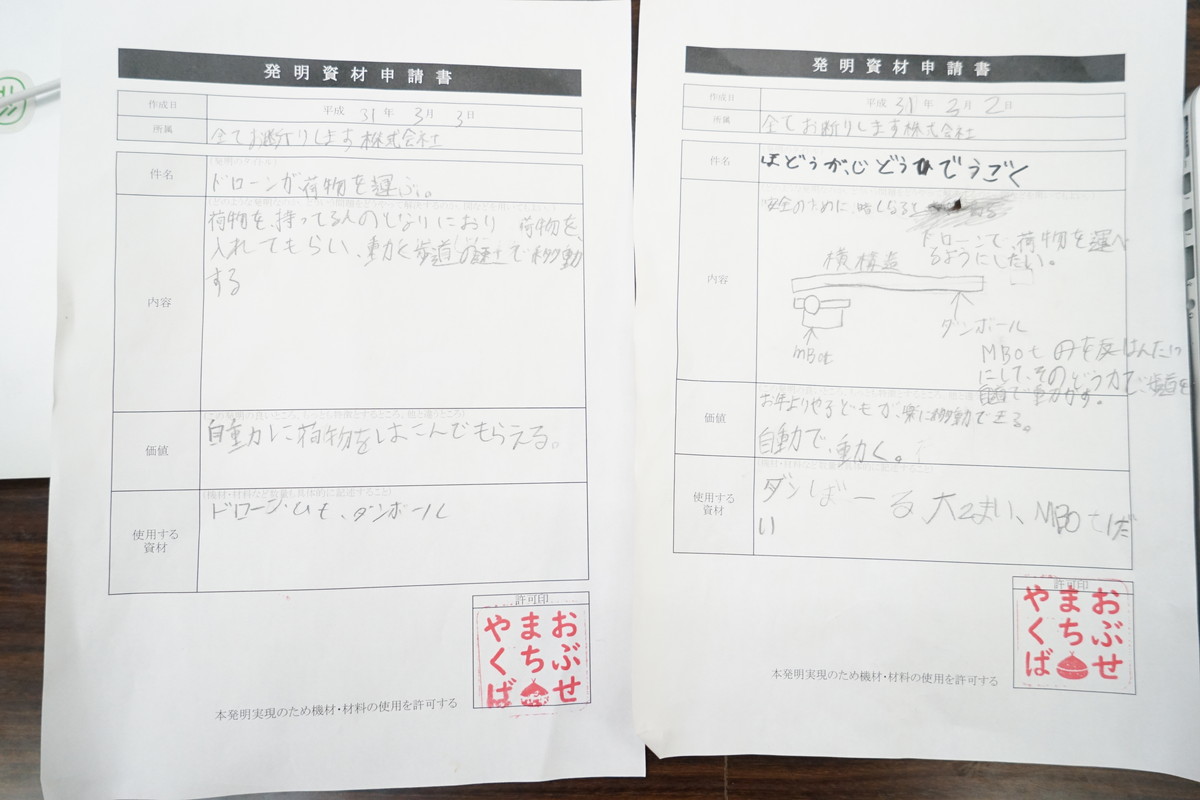 発明資材申請書
作成日 平成 31 年 3 月 3 日
所属 全てお断りします株式会社
件名 ドローンが荷物を運ぶ。
内容
荷物を、持ってる人のとなりにおり 荷物を、
入れてもらい、動く歩道の速さで移動
する
価値
自動力に荷物をはこんでもらえる。
使用する
資材
(機材・材料など数量も具体的に記述すること)
ドローン、ひも、ダンボール
許可印
おぶせ
まち
やくば
本発明実現のため機材・材料の使用を許可する
発明資材申請書
作成日 平成 31 年 3 月 2 日
所属 全てお断りします株式会社
件名 ほどうが、じどうひでうごく
内容
安全のために、暗くなると
ドローンで、荷物を運べ
るようにしたい。
横構造
ダンボール
mBot
MBot のを反はんたい
にして、そのどう力で、歩道を
自道で動かす。
価値
お年よりや子どもが、楽に移動できる。
自動で、動く。
使用する
資材
ダンしぼーる、大こまい、MBOt 1だ
い
許可印
おぶせ
まち
やくば
本発明実現のため機材・材料の使用を許可する